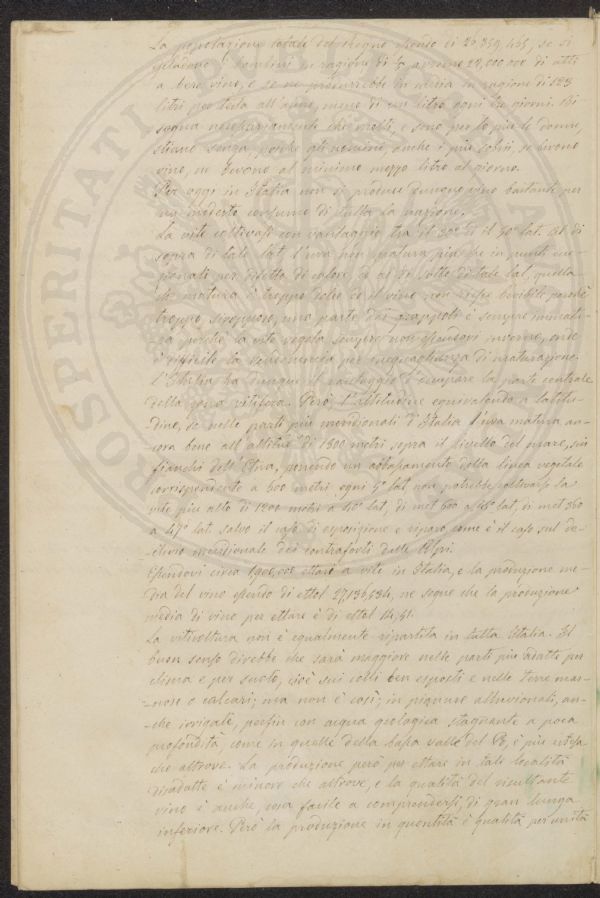 La popolazione totale del Regno essendo di 26,859,465, se si
gliono i bambini in ragione di avremo 21,000,000 di atti
a bere vino, e se ne produrrebbe in media in ragione di 123
litri per testa all'anno, meno di un litro ogni tre giorni. Bi
sogna necessariamente che molti, e sono per lo più le donne,
stiano senza, poichè gli uomini, anche i più sobrii, se bevono
vino, ne bevono al minimo mezzo litro al giorno.
Per oggi in Italia non si produce dunque vino bastante per
un modesto consumo di tutta la nazione.
La vite coltivasi con vantaggio tra il 30° e il 50° lat. Al di
sopra di tale lat. l'uva non matura più che in punti
per difetto di calore, e al di sotto di tale lat. quella
che matura è troppo dolce ed il vino non riesce bevibile perchè
troppo sciropposo, una parte dei grappoli è sempre
perchè la vite vegeta sempre non essendovi inverno, onde
è difficile la vendemmia per ineguaglianza di maturazione.
L'Italia ha dunque il vantaggio d'occupare la parte centrale
della zona vitifera. Però, l'altitudine equivalendo a latitu-
dine, se nelle parti più meridionali d'Italia l'uva matura an-
cora bene all'altitud. di 1300 metri sopra il livello del mare, sui
fianchi dell'Etna, ponendo un abbassamento della linea vegetale
corrispondente a 600 metri ogni 5° lat. non potrebbe coltivarsi la
vite più alto di 1200 metri a 40° lat, di met 600 a 45° lat, di met 360
a 47° lat. salvo il caso di esposizione e riparo come è il caso sul de-
clivio meridionale dei contraforti delle Alpi.
Essendovi circa 1,900,000 ettari a vite in Italia, e la produzione me-
dia del vino essendo di ettol 27,136,534, ne segue che la produzione
media di vino per ettare è di ettol 14,51.
La viticoltura non è egualmente ripartita in tutta Italia. Il
buon senso direbbe che sarà maggiore nelle parti più adatte per
clima e per suolo, cioè sui colli ben esposti e nelle terre mar-
nose e calcari; ma non è così; in pianure alluvionali, an-
che irrigate, perfin con acqua geologica stagnante a poca
profondità come in quelle della bassa valle del Po, è più estesa
che altrove. La produzione però per ettare in tali località
disadatte è minore che altrove, e la qualità del risultante
vino è anche, cosa facile a comprendersi, di gran lunga
inferiore. Però la produzione in quantità e qualità per unità
PROSPERITATI PUBLICAE